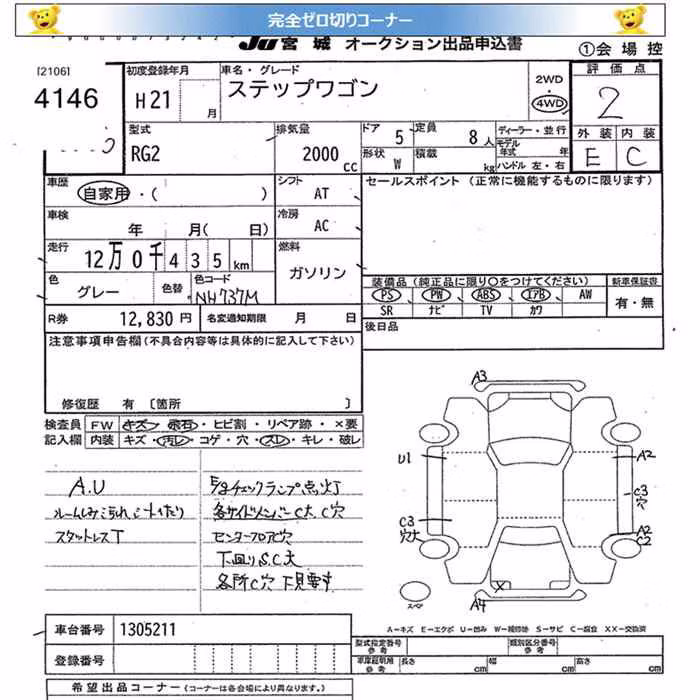 完全ゼロ切りコーナー
JU 宮城 オークション出品申込書
①会場控
[2106]
4146
初度登録年月
H21 月
車名・グレード
ステップワゴン
2WD
4WD
評価点
2
外装 内装
E C
型式
RG2
排気量
2000 CC
ドア 5
定員 8人
形状 W
積載 kg
ディーラー・並行
モデル年式 年
ハンドル 左・右
車歴
自家用・( )
シフト
AT
セールスポイント (正常に機能するものに限ります)
車検
年 月( 日)
冷房
AC
走行
12万0千435km
燃料
ガソリン
色
グレー
色替
色コード
NH737M
装備品 (純正品に限り○をつけてください)
新車保証書
PS PW ABS エアB AW
SR ナビ TV カワ
有・無
R券 12,830円
名変通知期限 月 日
後日品
注意事項申告欄(不具合内容等は具体的に記入して下さい)
修復歴 有 〔箇所 〕
検査員記入欄
FW キズ・飛石・ヒビ割・リペア跡・×要
内装 キズ・汚レ・コゲ・穴・スレ・キレ・破レ
A.U
スタットレスT
E/gチェックランプ点灯
各サイドメンバーC大、C穴
センターフロアC穴
下回りS.C大
各所C穴 下見要す
A3
U1
A2
C3
穴
C3
穴大
A2
C2
X
A4
スペア
A−キズ E−エクボ U−凹み W−補修跡 S−サビ C−腐食 XX−交換済
車台番号
1305211
登録番号
型式指定番号
参考
類別区分番号
参考
車庫証明用
参考
長さ cm
幅 cm
高さ cm
希望出品コーナー (コーナーは各会場により異なります。)